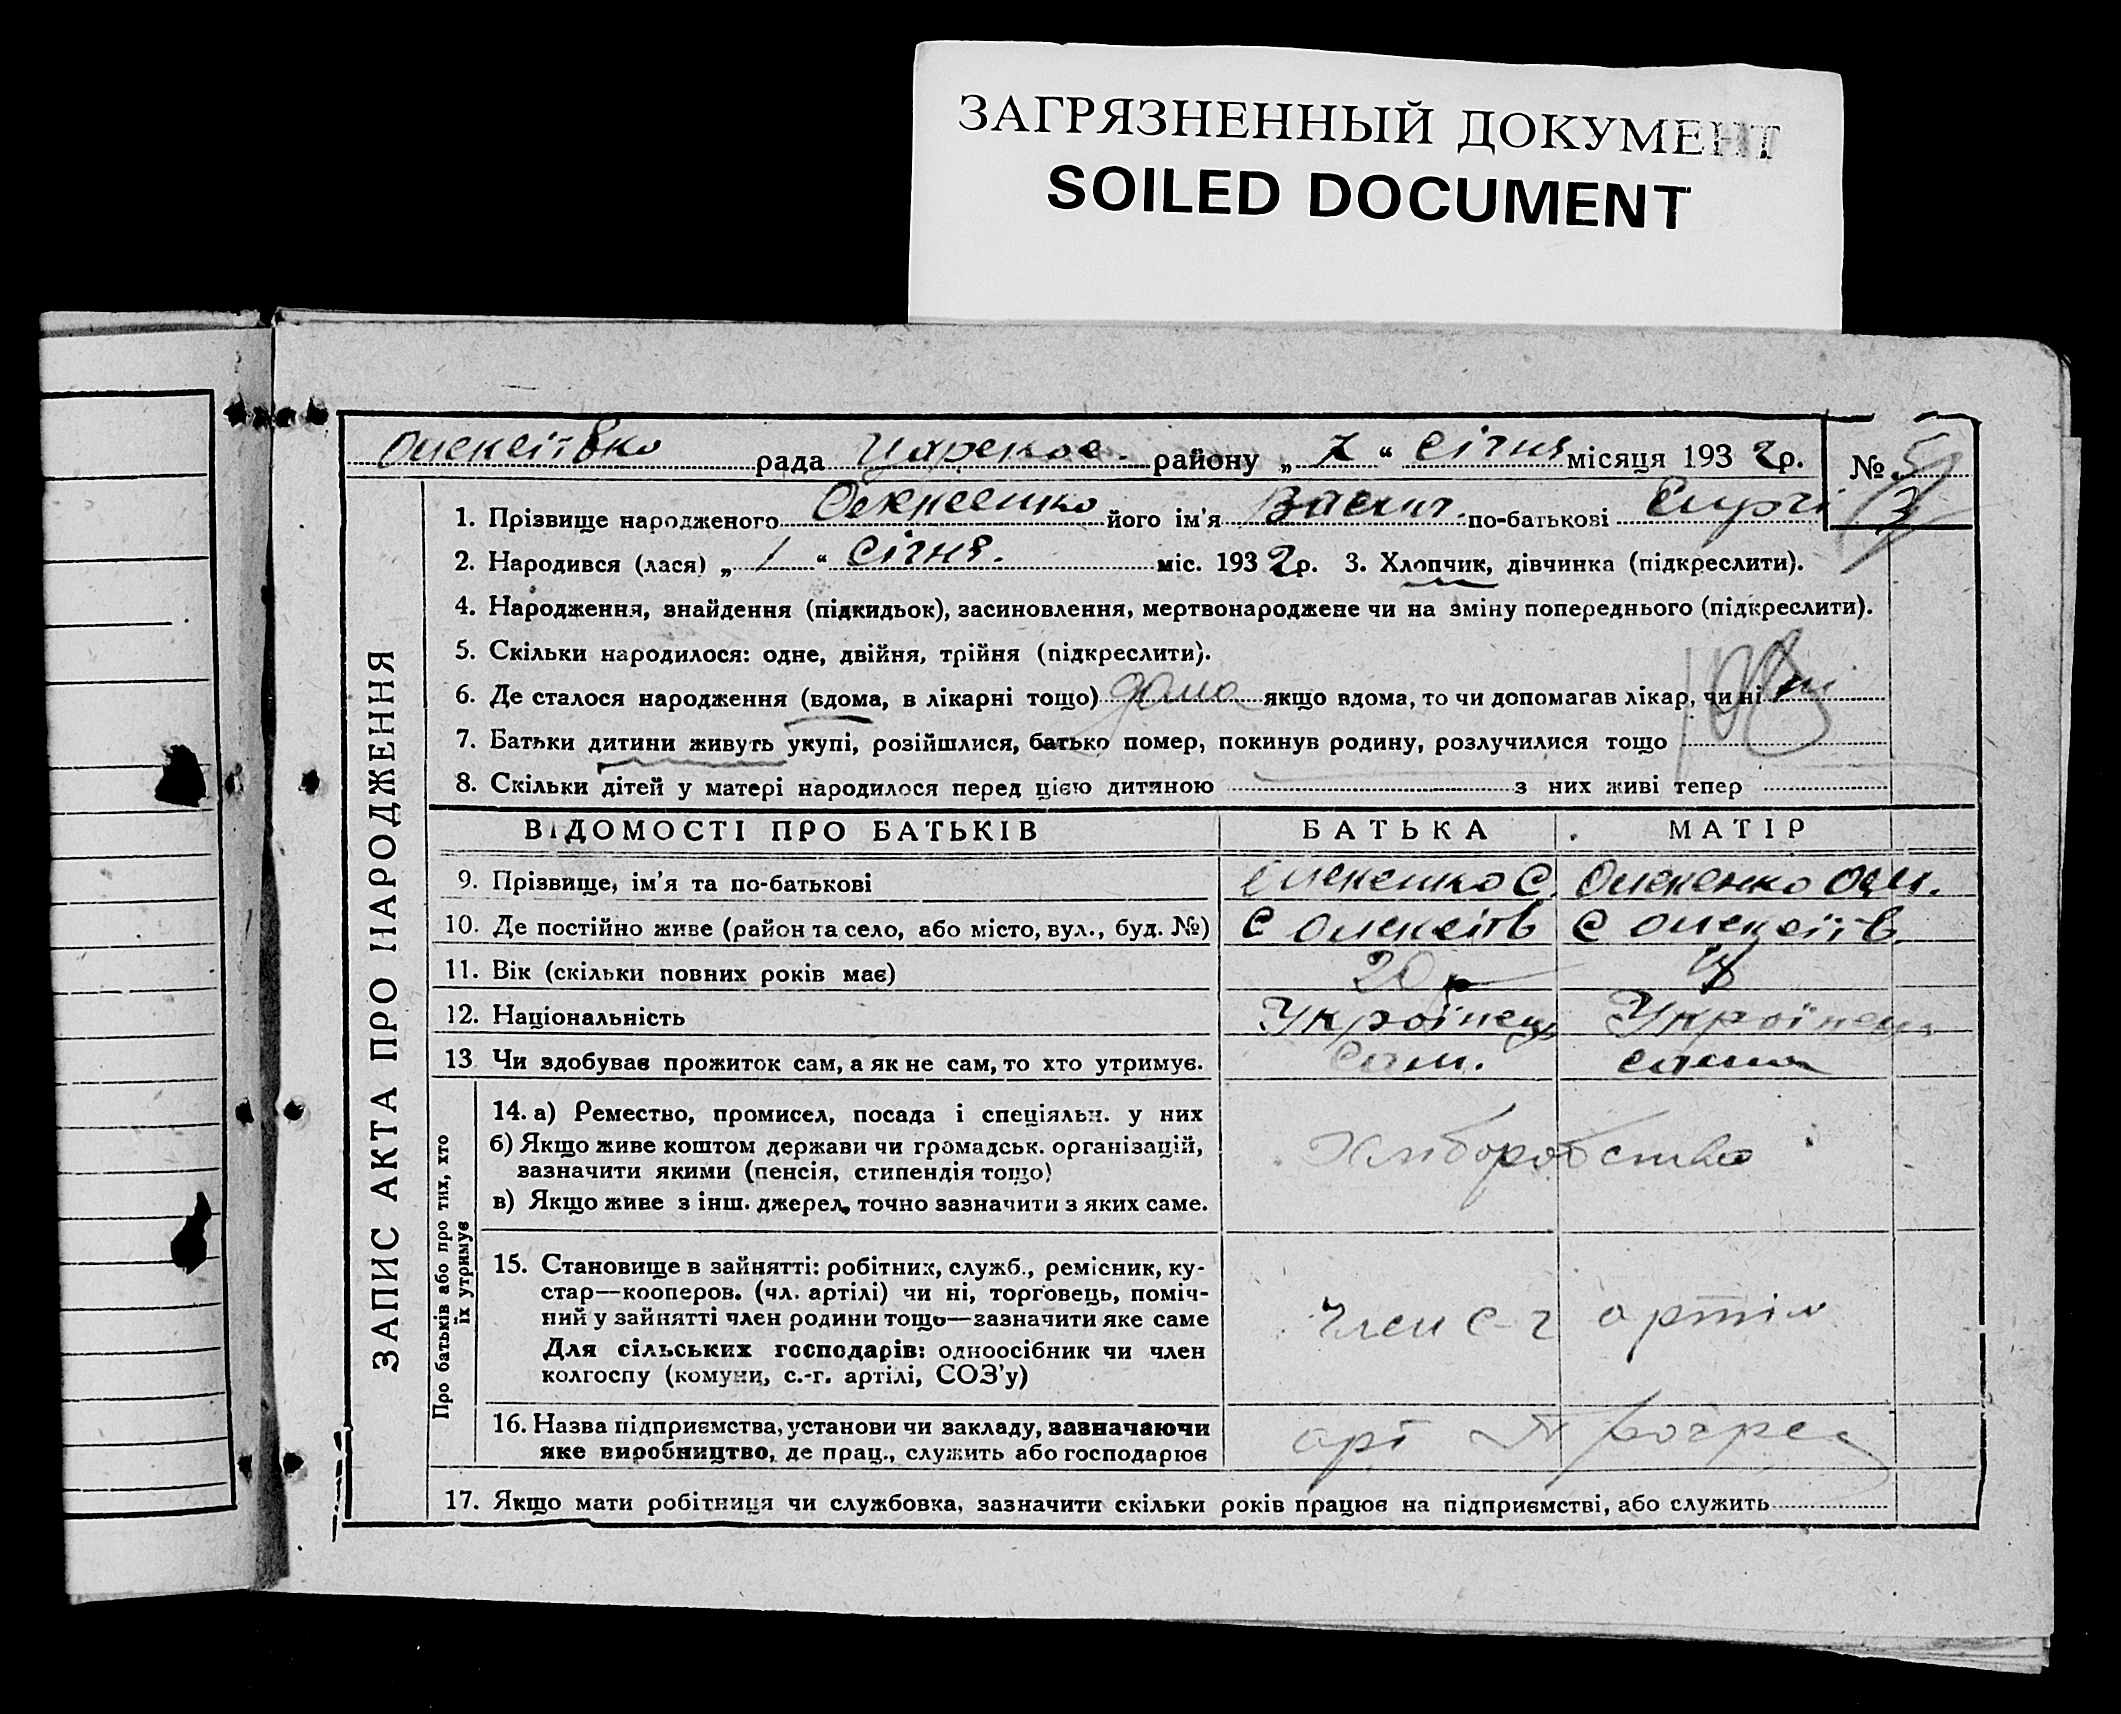 ЗАГРЯЗНЕННЫЙ ДОКУМЕНТ
SOILED DOCUMENT
рада района району „ “ січня місяця 1932р. №
ЗАПИС АКТА ПРО НАРОДЖЕННЯ
1. Прізвище народженого його ім'я по-батькові
2. Народився (лася) „ 1 “ січня. міс. 1932р. 3. Хлопчик, дівчинка (підкреслити).
4. Народження, знайдення (підкидьок), засиновлення, мертвонароджене чи на зміну попереднього (підкреслити).
5. Скільки народилося: одне, двійня, трійня (підкреслити).
6. Де сталося народження (вдома, в лікарні тощо) дома якщо вдома, то чи допомагав лікар, чи ні
7. Батьки дитини живуть укупі, розійшлися, батько помер, покинув родину, розлучилися тощо
8. Скільки дітей у матері народилося перед цією дитиною з них живі тепер
ВІДОМОСТІ ПРО БАТЬКІВ БАТЬКА МАТІР
9. Прізвище, ім'я та по-батькові
10. Де постійно живе (район та село, або місто, вул., буд. №) с Олексіїв с Олексіїв
11. Вік (скільки повних років має) 20 р
12. Національність Україпець Україпець
13 Чи здобуває прожиток сам, а як не сам, то хто утримує. Сам. сама
Про батьків або про тих, хто їх утримує
14. а) Ремество, промисел, посада і спеціяльн. у них
б) Якщо живе коштом держави чи громадськ. організацій,
вазначити якими (пенсія, стипендія тощо) Хліборобство
в) Якщо живе з інш. джерел, точно зазначити з яких саме.
15. Становище в зайнятті: робітник, служб., ремісник, ку-
стар—кооперов. (чл. артілі) чи ні, торговець, поміч-
ний у зайнятті член родини тощо—зазначити яке саме член с-г артіл
Для сільських господарів: одноосібник чи член
колгоспу (комуни, с.-г. артілі, СОЗ'у)
16. Назва підприємства, установи чи закладу, зазначаючи
яке виробництво, де прац., служить або господарює
17. Якщо мати робітниця чи службовка, зазначити скільки років працює на підприємстві, або служить